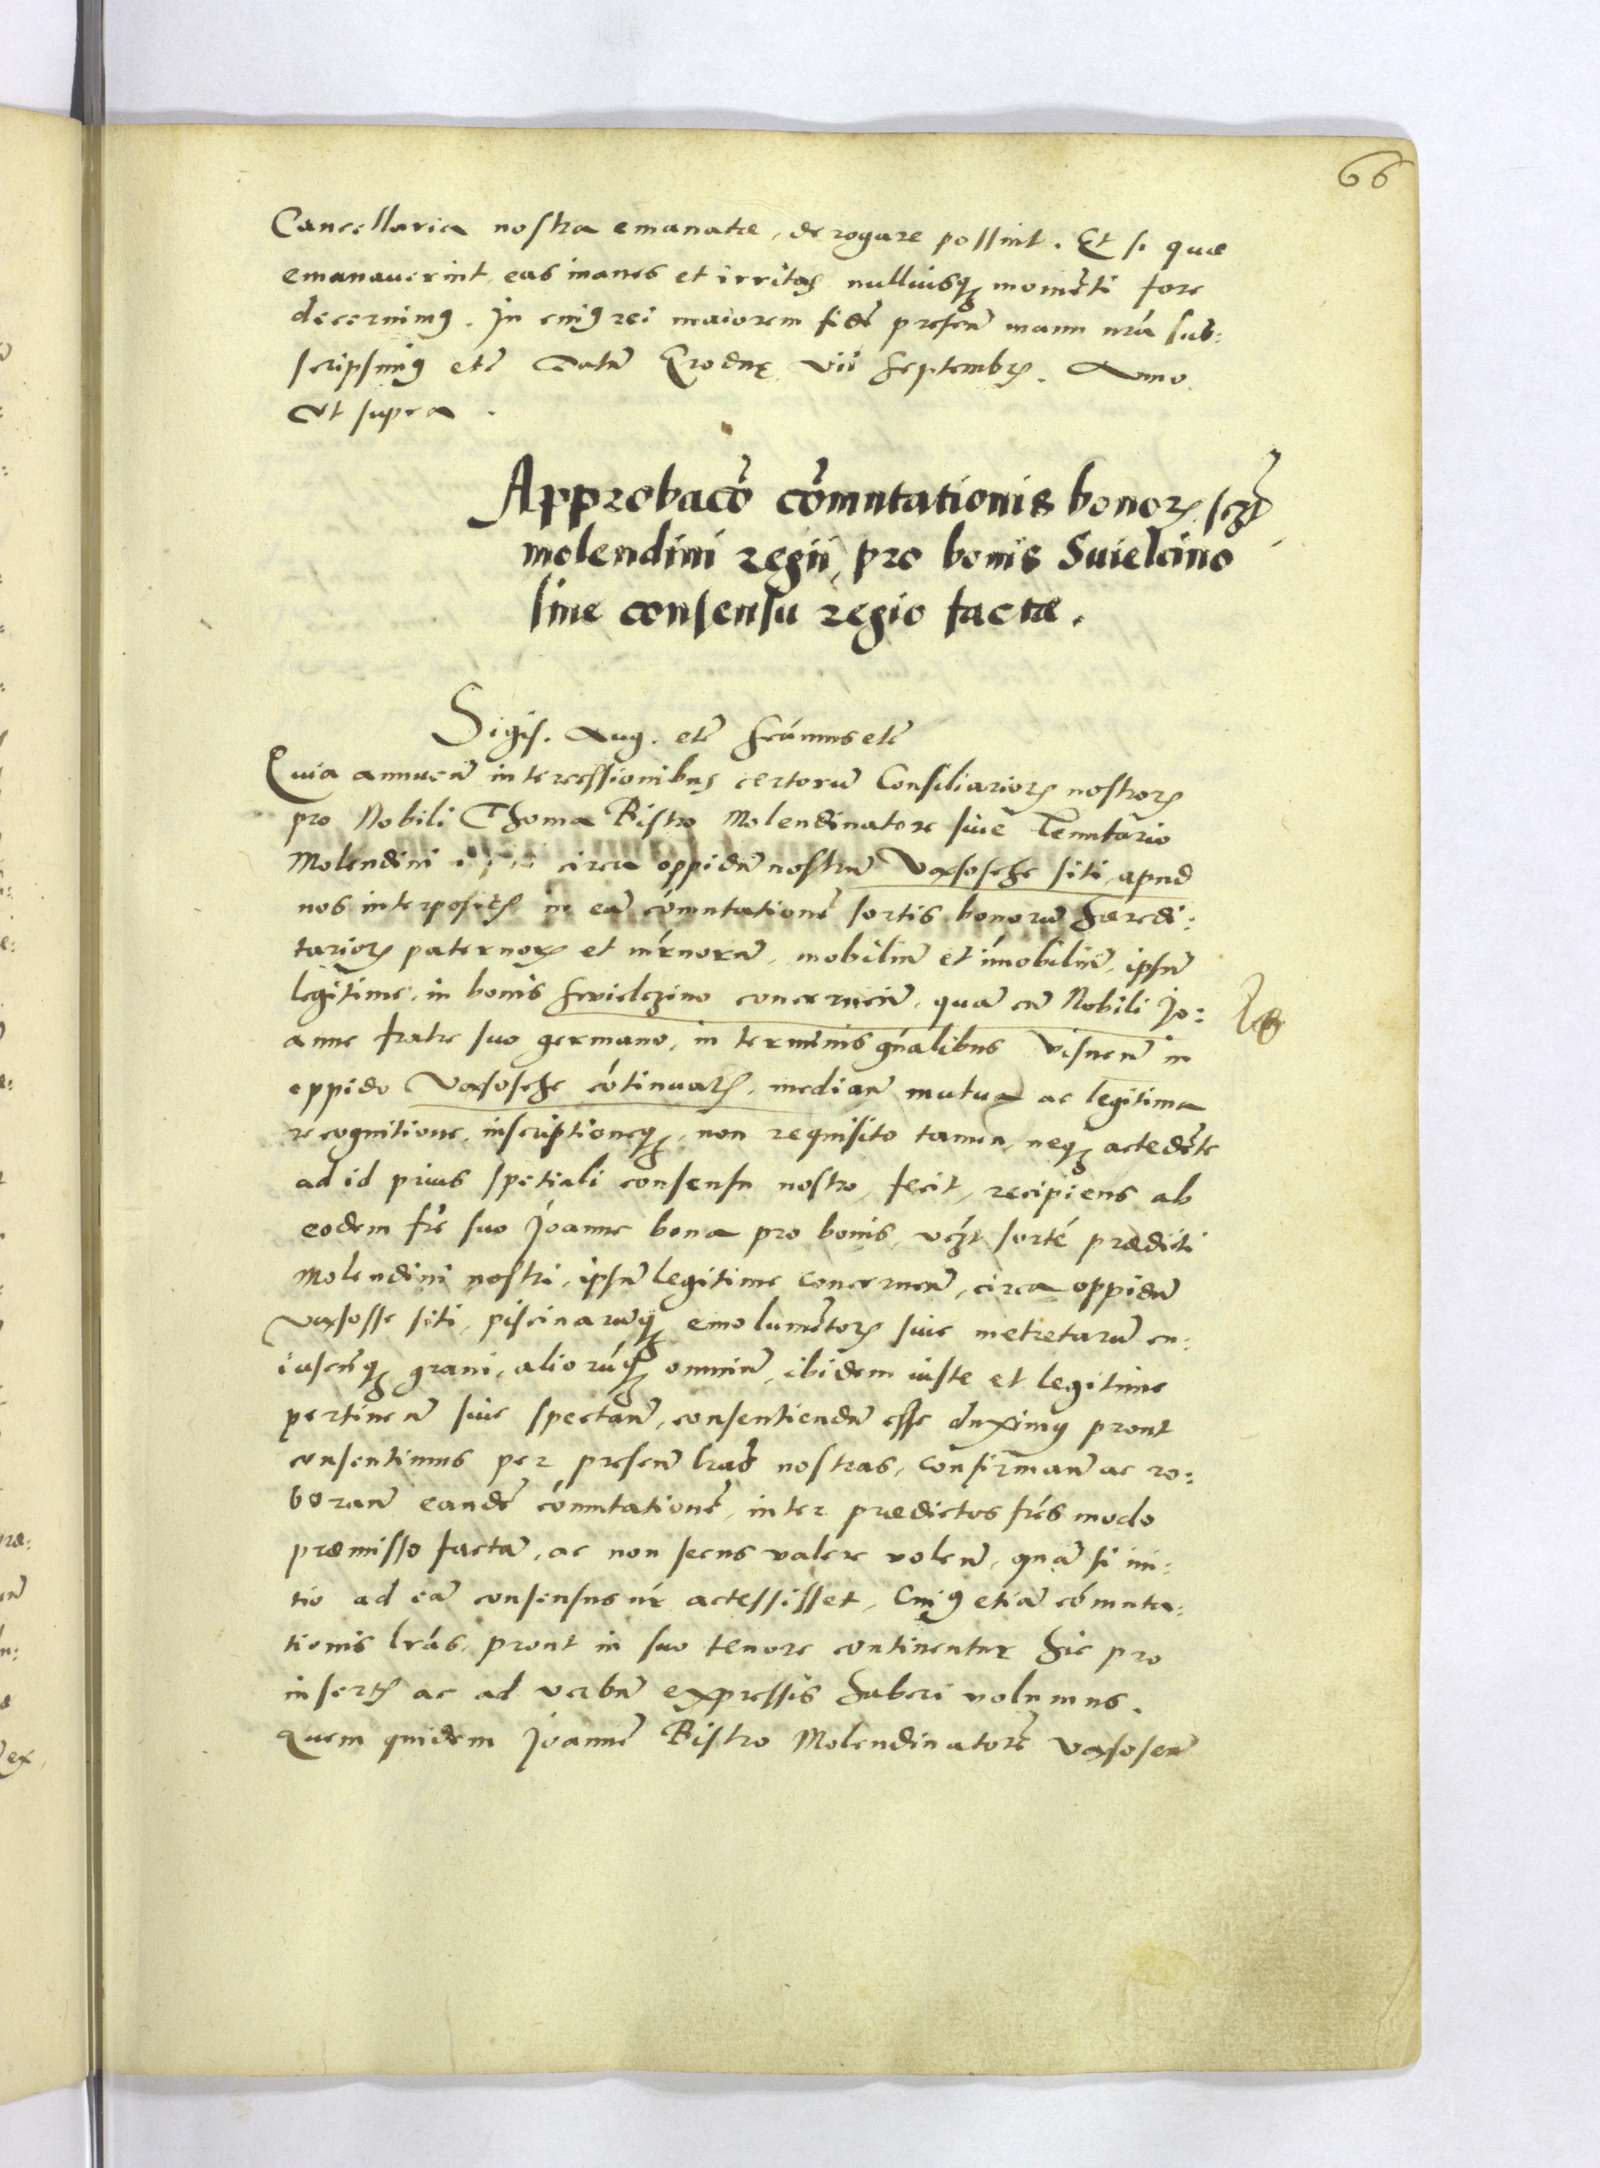 66
Cancellaria nostra emanatæ, derogare possint. Et si quæ
emanaverint, eas inanes et irritas nulliusq momēti fore
decernimꝰ. In cuiꝰ rei maiorem fidē presen̄ manu nrā sub:
scripsimꝰ etc̄ Datū Grodnę vii Septembrꝭ. Anno
Ut supra.
Approbacō cōmutationis bonoꝝ, sczt̄
molendini regii, pro bonis Suielcino
sine consensu regio factæ.
Sigis. Aug. etc̄ scūmus etc̄
Quia annuen̄ intercessionibus certorū Consiliarioꝝ nostroꝝ
pro Nobili Thoma Bistro Molendinatore sive Tenutario
Molendini circa oppidū nostrū Vaxosche siti, apud
nos interpositꝭ in eā cōmutationē sortis bonorū hæredi:
tarioꝝ paternoꝝ et mrnorū, mobiliū et īmobiliū, ipsū
legitime, in bonis Swielczino concernen̄, quā cū Nobili Jo:
anne fratre suo germano, in terminis gn̄alibus Visnen̄ in
oppido Vaxosche cōtinuatꝭ, median̄ mutua ac legitima
recognitione, inscriptioneq, non requisito tamen, neq accedēte
ad id prius spetiali consensu nostro, fecit, recipiens ab
eodem fre suo Joanne bona pro bonis, vczt sortē prædicti
Molendini nostri, ipsū legitime concernen̄, circa oppidū
Vaxosse siti, piscinarūq emolumētoꝝ sive metretarū cu:
iuscūq grani, aliorūq omniū, ibidem iuste et legitime
pertinen̄ sive spectan̄, consentiendū esse duximꝰ prout
consentimus per presen̄ lras nostras, confirman̄ ac ro:
boran̄ eandē cōmutationē, inter prædictos frēs modo
præmisso factā, ac non secus valere volen̄, quā si ini:
tio ad eā consensus nr accessisset, Cuiꝰ etiā cōmuta:
tionis lrās, prout in suo tenore continentur hic pro
insertꝭ ac ad verbū expressis haberi volumus.
Quem quidem Joannē Bistro Molendinatorē Vaxosen̄